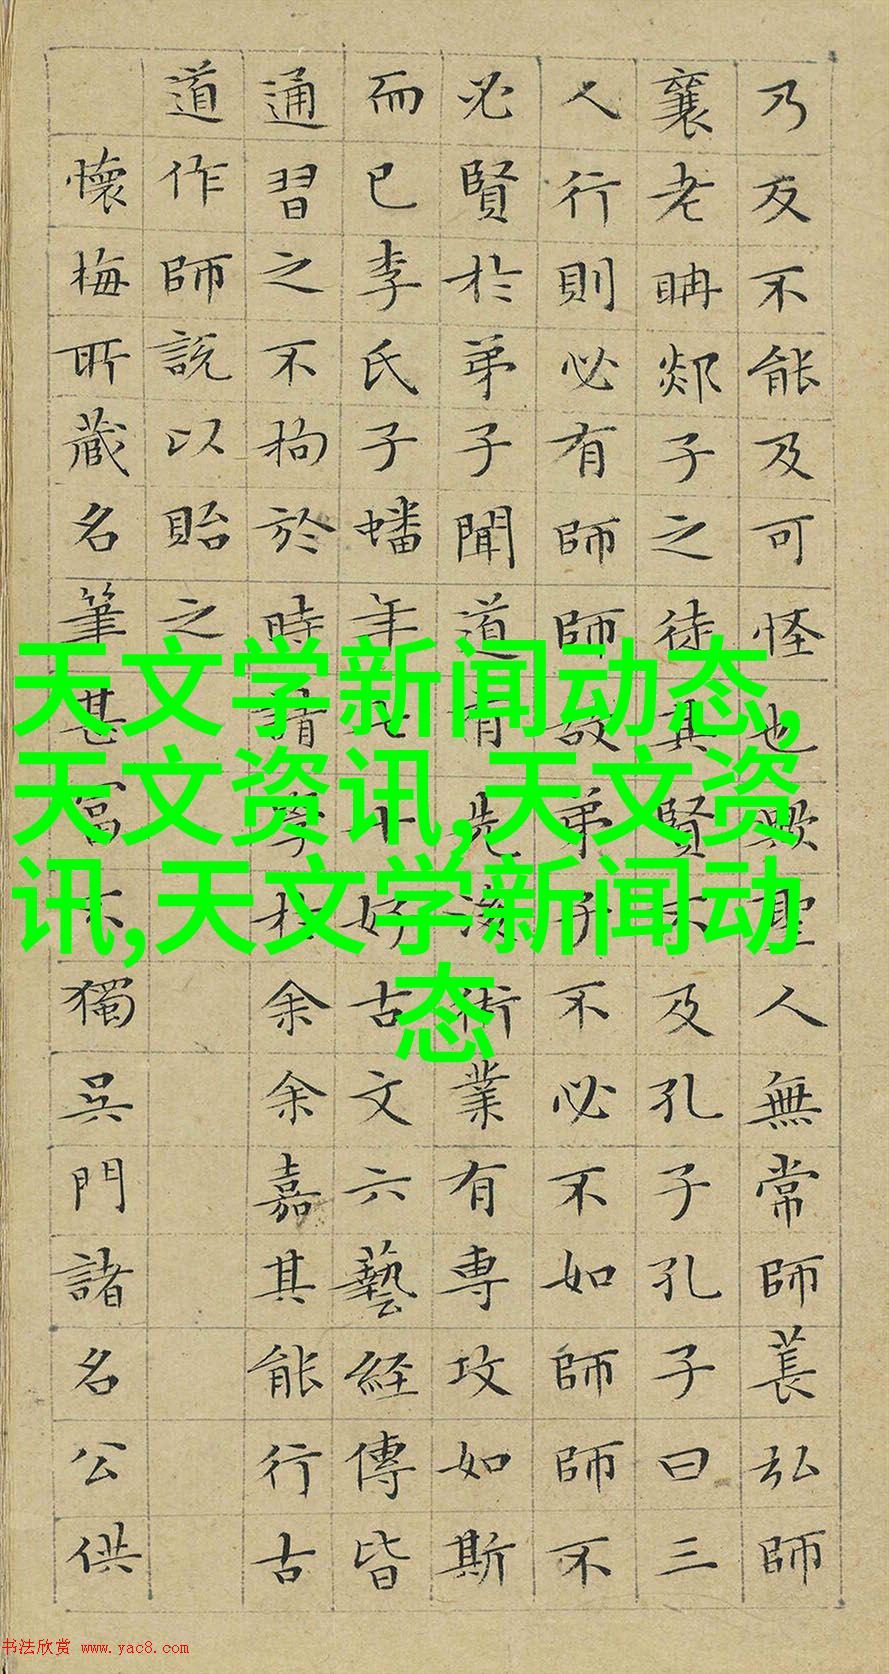 乃反不能及可怪也歟聖人無常師萇弘師
襄老聃郯子之徒其賢不及孔子孔子曰三
人行則必有師師故弟子不必不如師師不
必賢於弟子聞道有先後術業有專攻如斯
而已李氏子蟠年七十好古文六藝經傳皆
通習之不拘於時請學於余余嘉其能行古
道作師說以貽之
懷梅所藏名筆甚富不獨吳門諸名公供
天文学新闻动态,
天文资讯,天文资
讯,天文学新闻动
态
书法欣赏 www.yac8.com